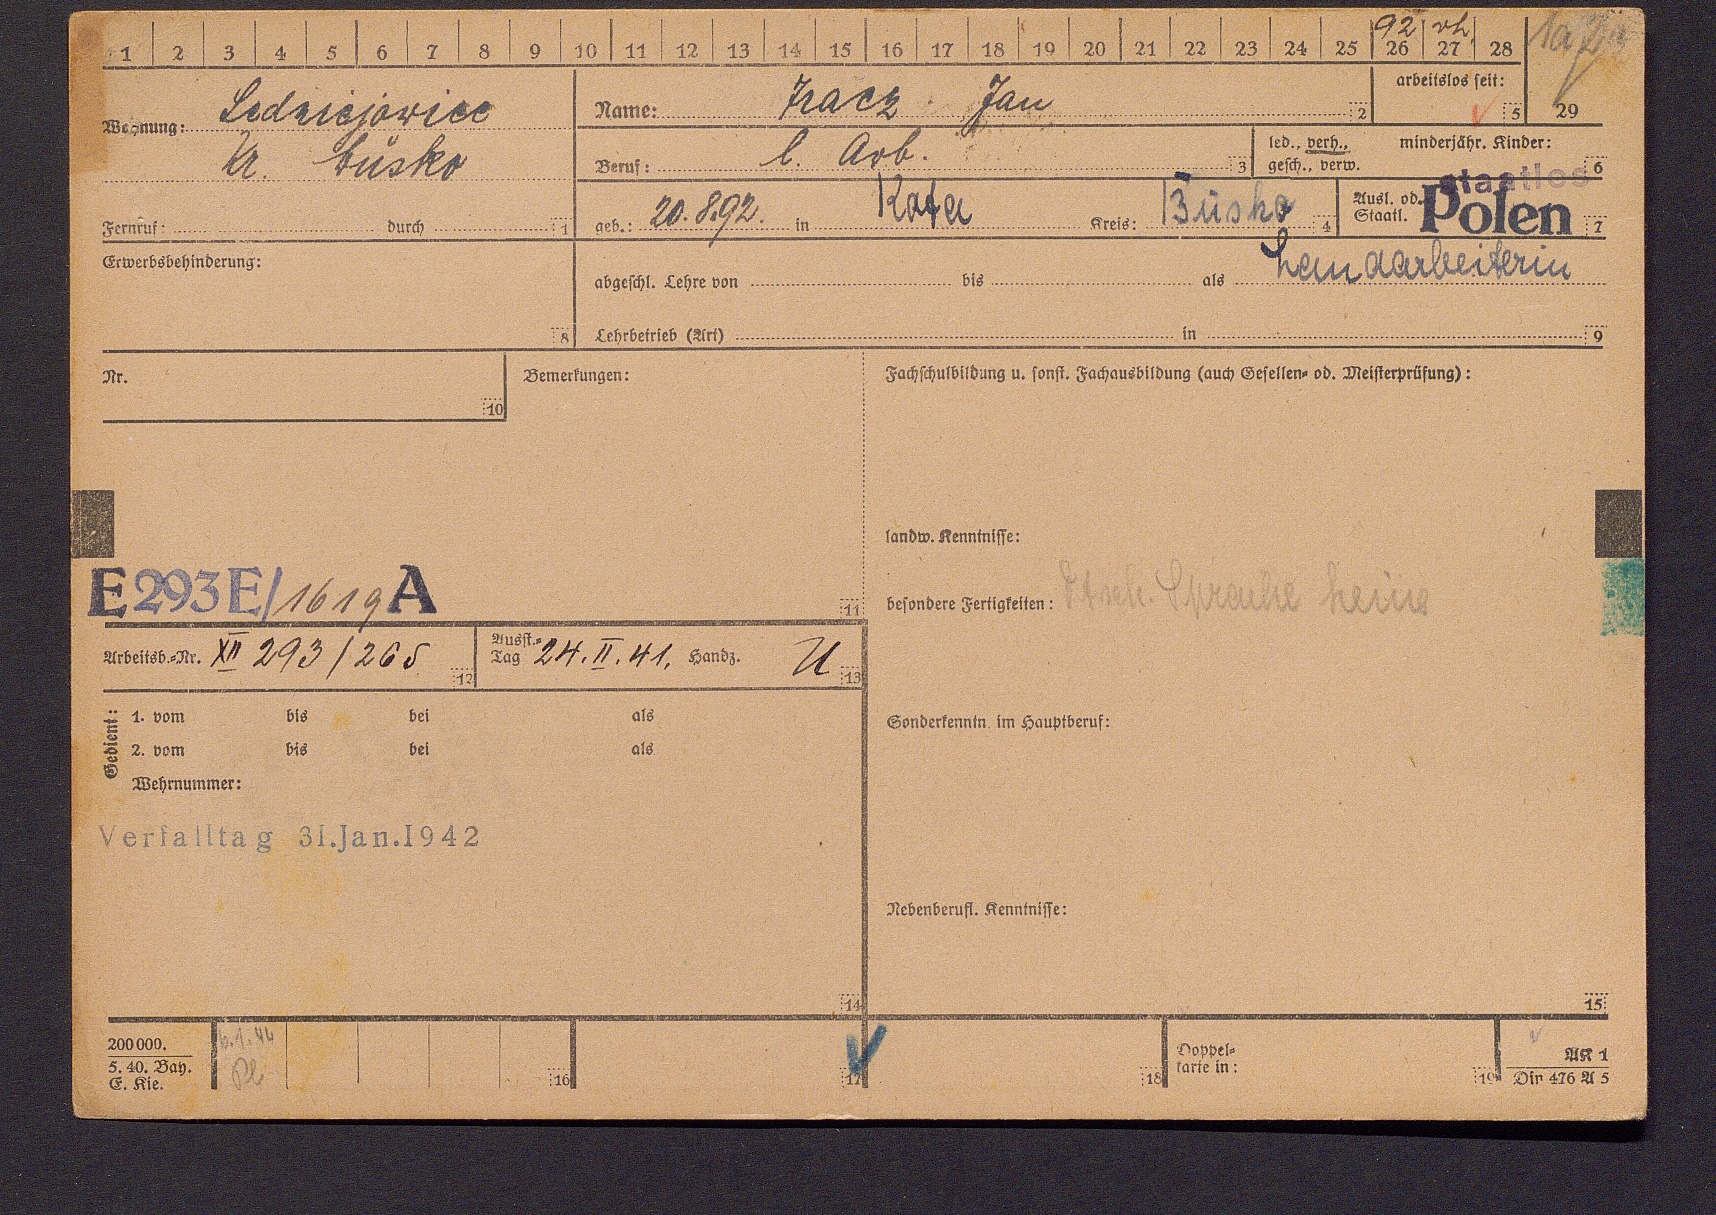 92 vh.
1 2 3 4 5 6 7 8 9 10 11 12 13 14 15 16 17 18 19 20 21 22 23 24 25 26 27 28
29
Wohnung: Sedziejowice
Kr. Büsko
Fernruf: durch 1
Name: Tracz Jan 2
arbeitslos seit: 5
Beruf: l. Arb. 3
led., verh., gesch., verw.
minderjähr. Kinder: 6
geb.: 20.8.92. in Kreis: Büsko 4
Ausl. od. Staatl. staatlos Polen 7
Erwerbsbehinderung: 8
abgeschl. Lehre von bis als Landarbeiterin
Lehrbetrieb (Art) in 9
Nr. 10
Bemerkungen:
Fachschulbildung u. sonst. Fachausbildung (auch Gesellen- od. Meisterprüfung):
landw. Kenntnisse:
E 293 E/1619 A 11
besondere Fertigkeiten: Dtsch. Sprache keine
Arbeitsb.-Nr. XII 293/265 12
Ausst.-Tag 24.II.41. Handz. 13
Gedient:
1. vom bis bei als
2. vom bis bei als
Wehrnummer:
Sonderkenntn. im Hauptberuf:
Verfalltag 31.Jan.1942
Nebenberufl. Kenntnisse:
14
15
200000.
5. 40. Bay.
E. Kie.
16
17
18
Doppelkarte in:
19
AK 1
Din 476 A 5